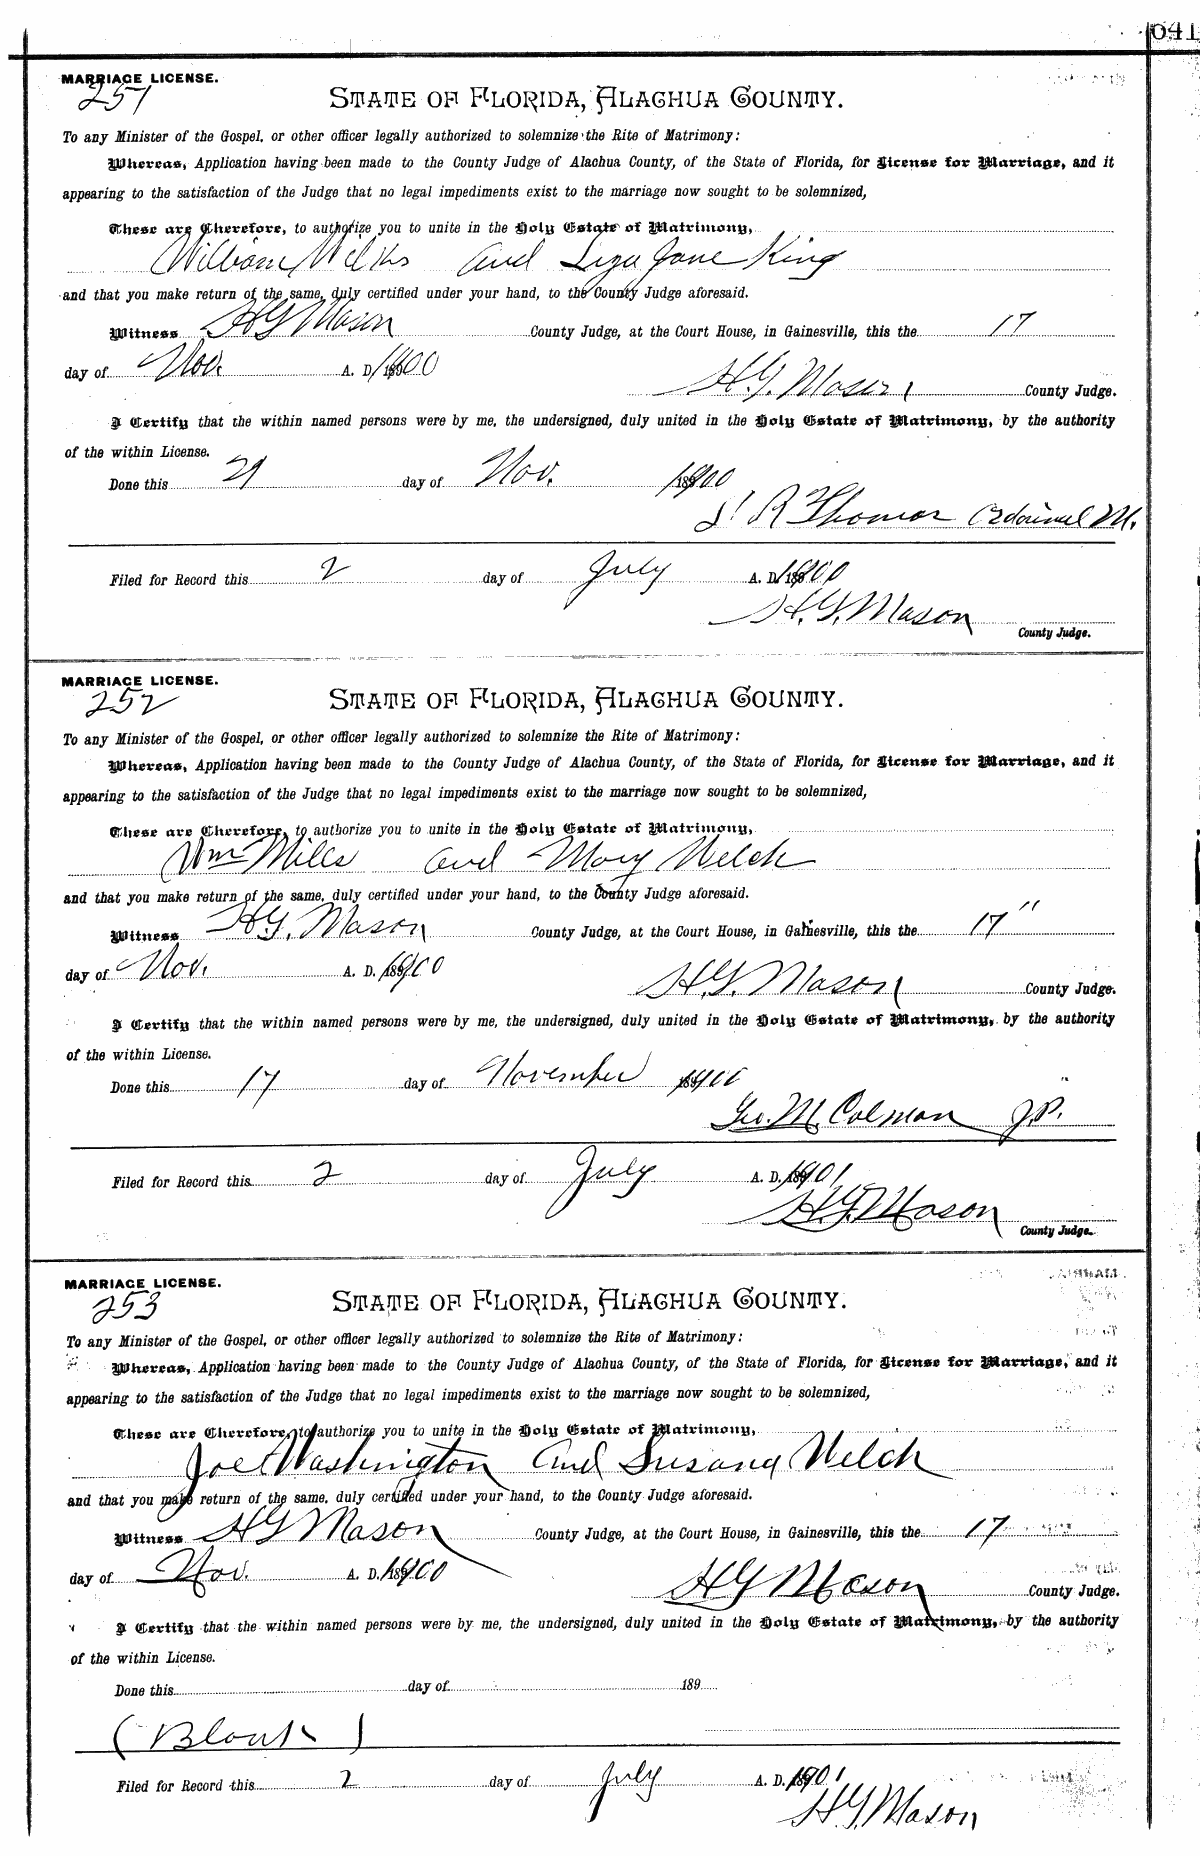 641
MARRIAGE LICENSE.
251
STATE OF FLORIDA, ALACHUA COUNTY.
To any Minister of the Gospel, or other officer legally authorized to solemnize the Rite of Matrimony:
Whereas, Application having been made to the County Judge of Alachua County, of the State of Florida, for License for Marriage, and it
appearing to the satisfaction of the Judge that no legal impediments exist to the marriage now sought to be solemnized,
These are Therefore, to authorize you to unite in the Holy Estate of Matrimony,
William Wilks and Liza Jane King
and that you make return of the same, duly certified under your hand, to the County Judge aforesaid.
Witness H G Mason County Judge, at the Court House, in Gainesville, this the 17
day of Nov. A. D. 1900
H.G. Mason County Judge.
I Certify that the within named persons were by me, the undersigned, duly united in the Holy Estate of Matrimony, by the authority
of the within License.
Done this 21 day of Nov. 1900
R Thomas M.
Filed for Record this 2 day of July A. D. 1900
H. G. Mason
County Judge.
MARRIAGE LICENSE.
252
STATE OF FLORIDA, ALACHUA COUNTY.
To any Minister of the Gospel, or other officer legally authorized to solemnize the Rite of Matrimony:
Whereas, Application having been made to the County Judge of Alachua County, of the State of Florida, for License for Marriage, and it
appearing to the satisfaction of the Judge that no legal impediments exist to the marriage now sought to be solemnized,
These are Therefore, to authorize you to unite in the Holy Estate of Matrimony,
Wm Mills and Mary Welch
and that you make return of the same, duly certified under your hand, to the County Judge aforesaid.
Witness H.G. Mason County Judge, at the Court House, in Gainesville, this the 17"
day of Nov. A. D. 1900
H.G. Mason County Judge.
I Certify that the within named persons were by me, the undersigned, duly united in the Holy Estate of Matrimony, by the authority
of the within License.
Done this 17 day of November 1900
Geo. M. Colman J.P.
Filed for Record this 2 day of July A. D. 1901
H.G. Mason
County Judge.
MARRIAGE LICENSE.
253
STATE OF FLORIDA, ALACHUA COUNTY.
To any Minister of the Gospel, or other officer legally authorized to solemnize the Rite of Matrimony:
Whereas, Application having been made to the County Judge of Alachua County, of the State of Florida, for License for Marriage, and it
appearing to the satisfaction of the Judge that no legal impediments exist to the marriage now sought to be solemnized,
These are Therefore, to authorize you to unite in the Holy Estate of Matrimony,
Joe Washington and Susana Welch
and that you make return of the same, duly certified under your hand, to the County Judge aforesaid.
Witness H G Mason County Judge, at the Court House, in Gainesville, this the 17
day of Nov. A. D. 1900
H G Mason County Judge.
I Certify that the within named persons were by me, the undersigned, duly united in the Holy Estate of Matrimony, by the authority
of the within License.
Done this day of 189
(Blank)
Filed for Record this 2 day of July A. D. 1901
H.G. Mason